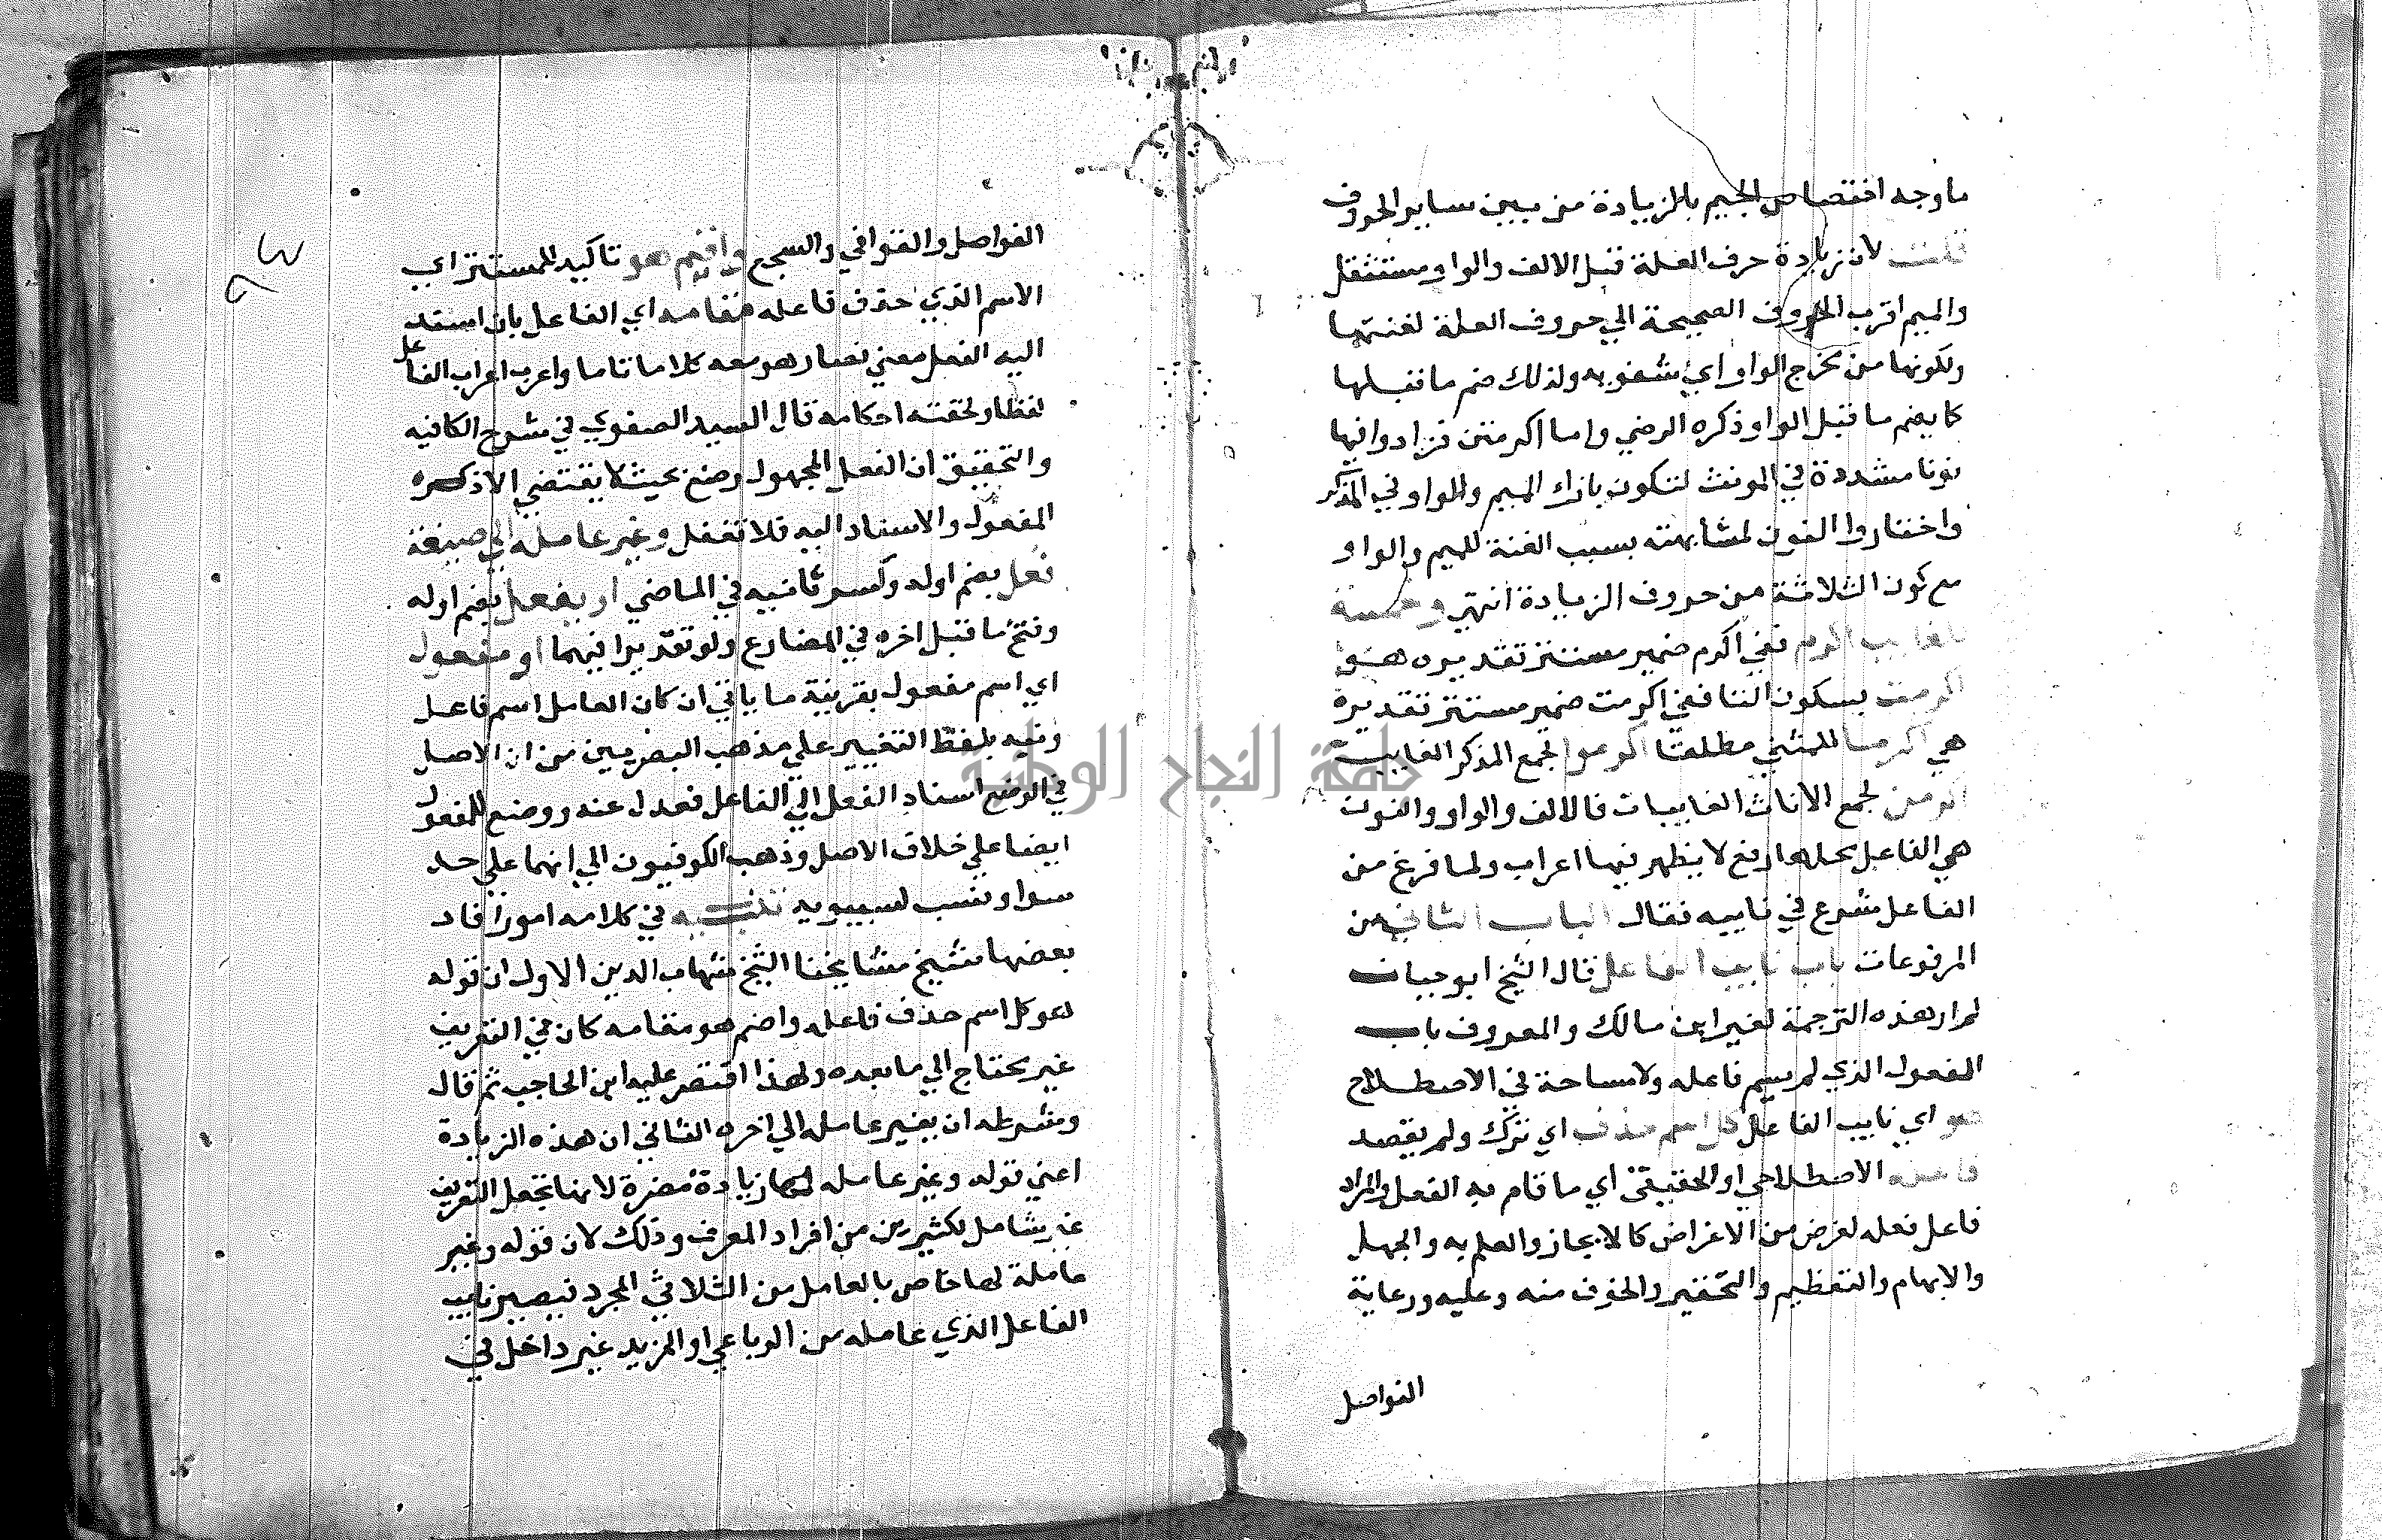 ما وجه اختصاص الميم بالزيادة من بين ساير الحروف
قلت لان زيادة حرف العلة قبل الالف والواو مستثقل
والميم اقرب الحروف الصحيحة الي حروف العلة لغنتها
ولكونها من مخرج الواو اي شفوية ولذلك ضم ما قبلها
كما يضم ما قبل الواو ذكره الرضي واما اكرمتن فزادوا فيها
نونا مشددة في المونث لتكون بازاء الميم والواو في المذكر
واختاروا النون لمشابهته بسبب الغنة للميم والواو
مع كون الثلاثة من حروف الزيادة انتهي وخمسة
للغايب اكرم ففي اكرم ضمير مستتر تقديره هو
اكرمت بسكون التا ففي اكرمت ضمير مستتر تقديره
هي اكرما للمثني مطلقا اكرموا لجمع المذكر الغايب
اكرمن لجمع الاناث الغايبات فالالف والواو والنون
هي الفاعل محلها رفع لا يظهر فيها اعراب ولما فرغ من
الفاعل شرع في نايبه فقال الباب الثاني من
المرفوعات باب نايب الفاعل قال الشيخ ابو حيان
لم ار هذه الترجمة لغير ابن مالك والمعروف باب
المفعول الذي لم يسم فاعله ولا مساحة في الاصطلاح
هو اي نايب الفاعل كل اسم حذف اي ترك ولم يقصد
فاعله الاصطلاحي او الحقيقي اي ما قام به الفعل والمراد
فاعل فعله لغرض من الاغراض كالايجاز والعلم به والجهل
والابهام والتعظيم والتحقير والخوف منه وعليه ورعاية
الفواصل
الفواصل والقوافي والسجع واقيم هو تاكيد للمستتر اي
الاسم الذي حذف فاعله مقامه اي الفاعل بان اسند
اليه الفعل معني فصار هو معه كلاما تاما واعرب اعراب الفاعل
لفظا ولحقته احكامه قال السيد الصفوي في شرح الكافيه
والتحقيق ان الفعل المجهول وضع بحيث لا يقتضي الا ذكره
المفعول والاسناد اليه فلا تغفل وغير عامله الي صيغة
فعل بضم اوله وكسر ثانيه في الماضي او يفعل بضم اوله
وفتح ما قبل اخره في المضارع ولو تقديرا فيهما او مفعول
اي اسم مفعول بقرينة ما ياتي ان كان العامل اسم فاعل
ونبه بلفظ التغيير علي مذهب البصريين من ان الاصل
في الوضع اسناد الفعل الي الفاعل فعدل عنه ووضع للمفعول
ايضا علي خلاف الاصل وذهب الكوفيون الي انهما علي حد
سوا ونسب لسيبويه تنبيه في كلامه امور افاد
بعضها شيخ مشايخنا الشيخ شهاب الدين الاول ان قوله
هو كل اسم حذف فاعله واضم هو مقامه كان في التعريف
غير يحتاج الي ما بعده ولهذا اقتصر عليه ابن الحاجب ثم قال
وشرطه ان يغير عامله الي اخره الثاني ان هذه الزيادة
اعني قوله وغير عامله زيادة مضرة لانها تجعل التعريف
غير شامل لكثيرين من افراد المعرف وذلك لان قوله وغير
عامله خاص بالعامل من الثلاثي المجرد فيصير نايب
الفاعل الذي عامله من الرباعي او المزيد غير داخل في